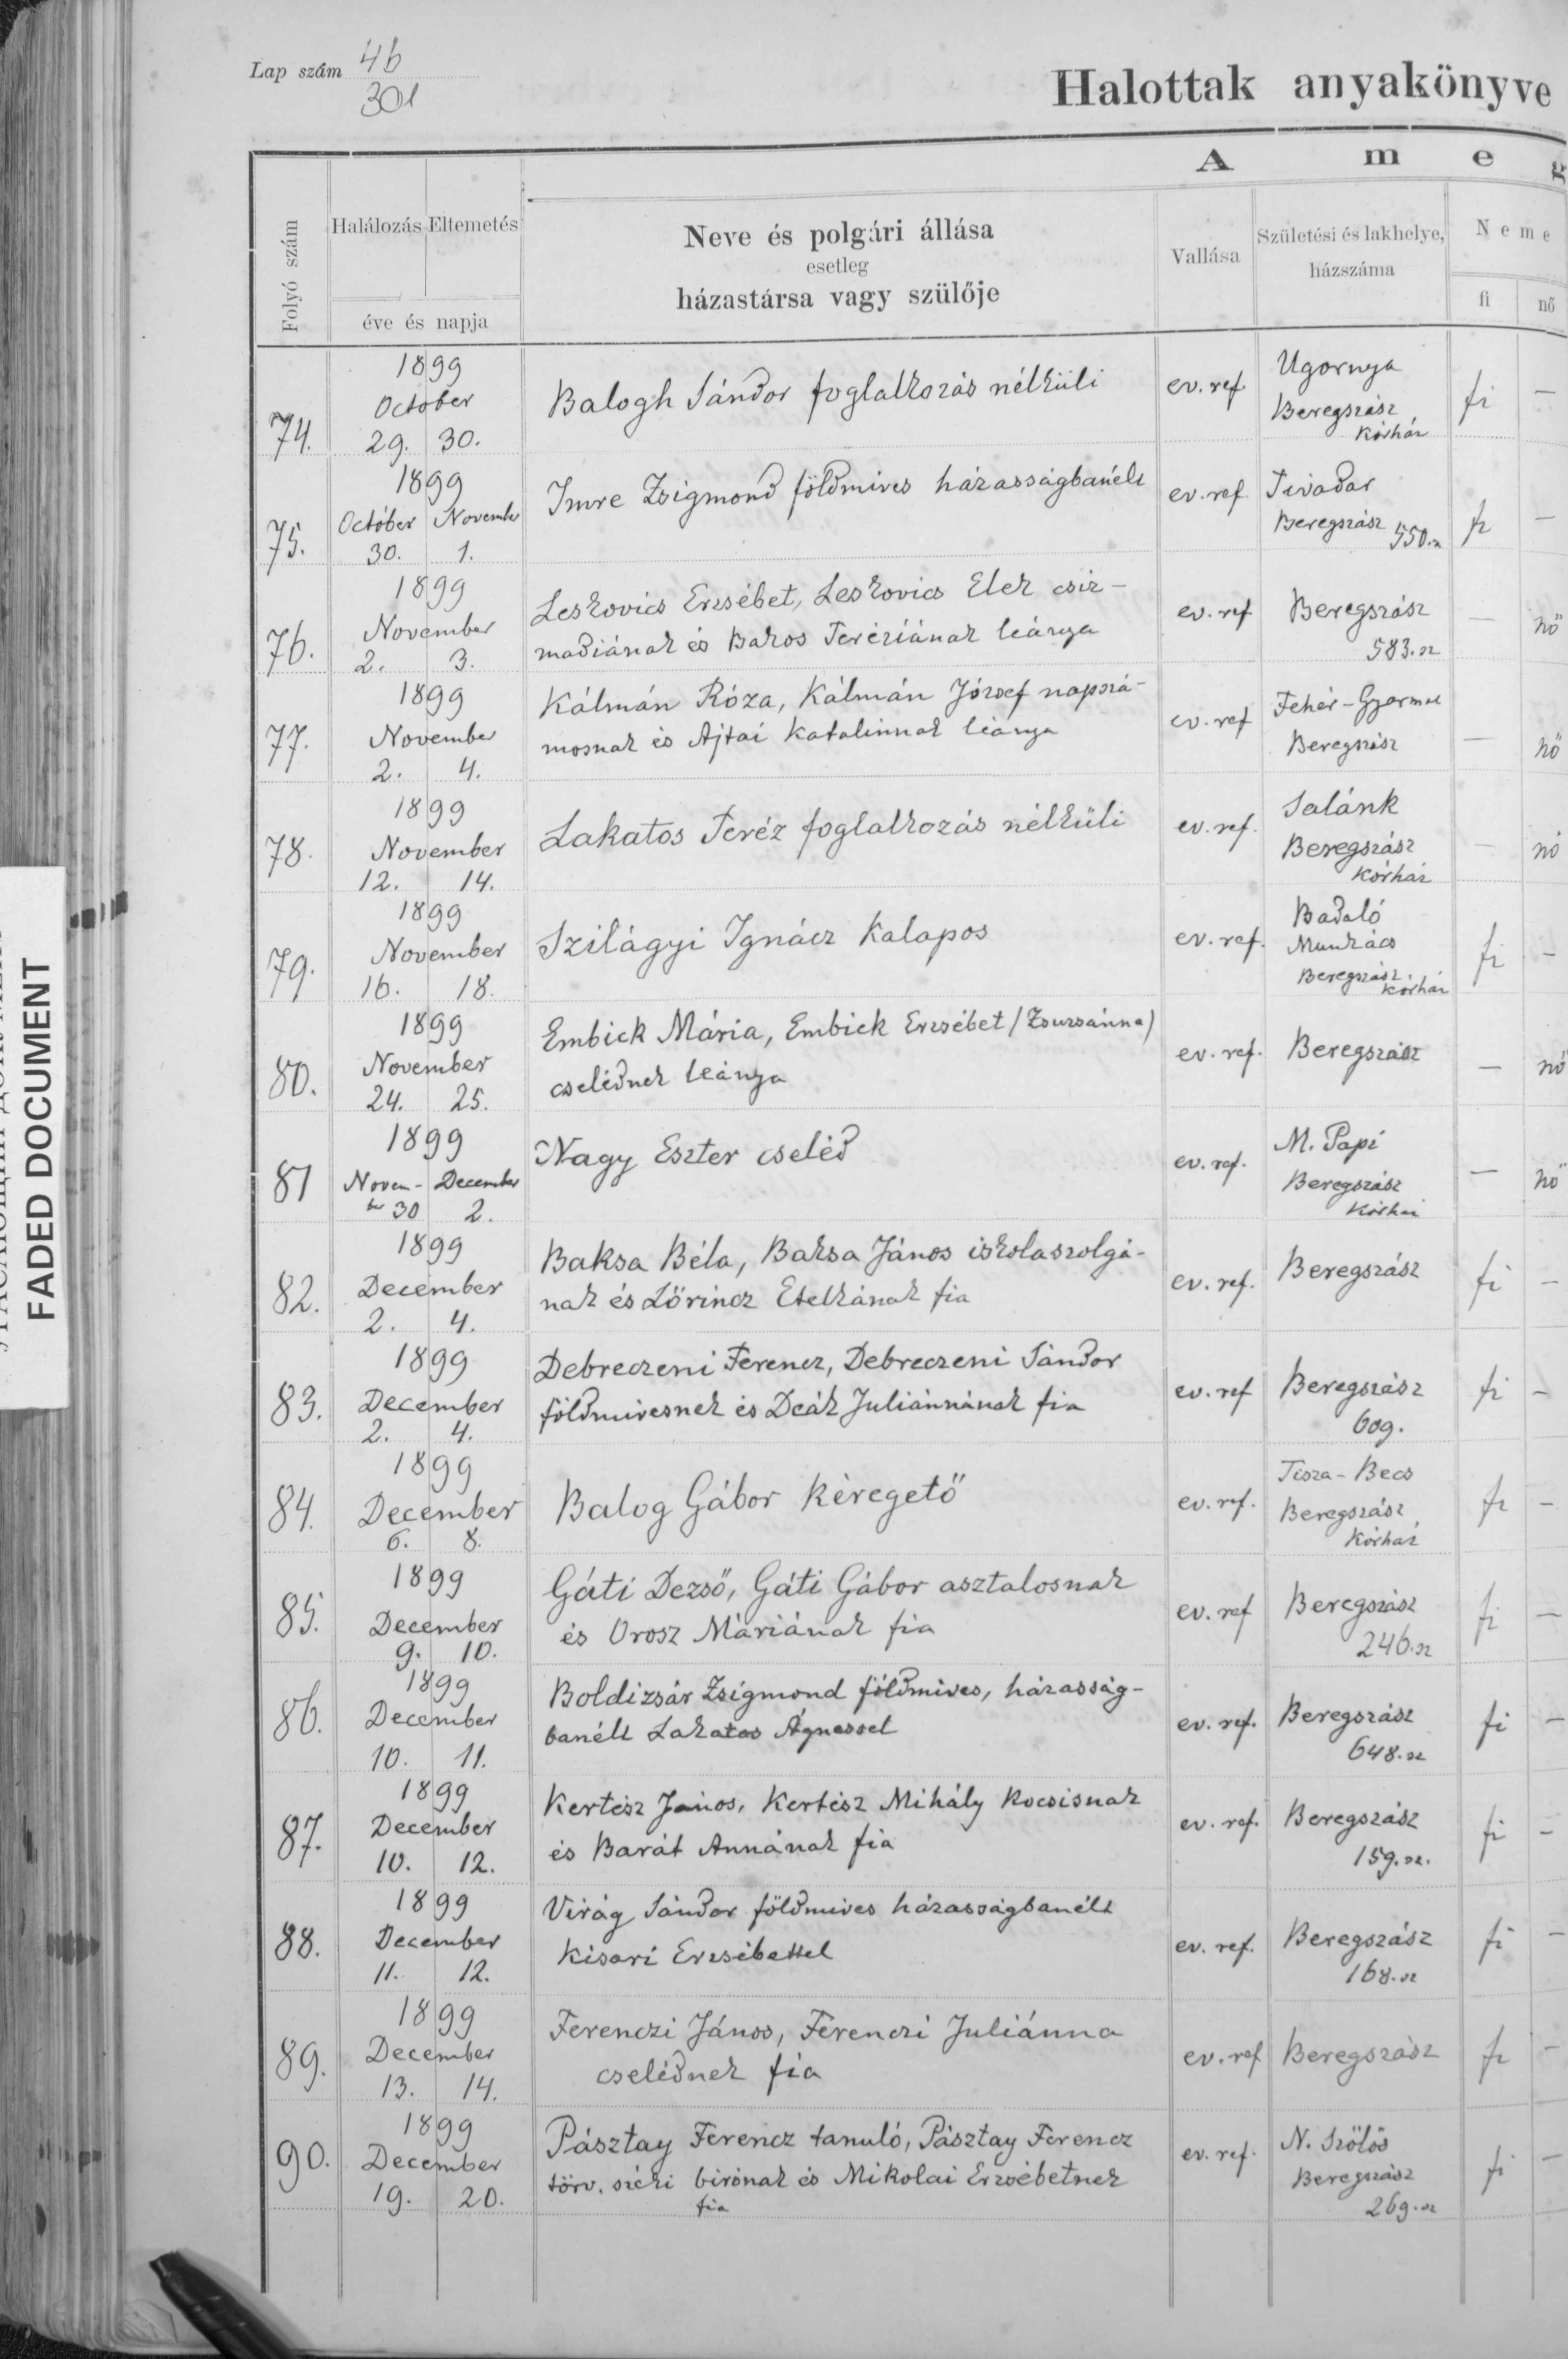 Lap szám 46
301
Halottak anyakönyve
A m e g
Folyó szám
Halálozás Eltemetés
éve és napja
Neve és polgári állása
esetleg
házastársa vagy szülője
Vallása
Születési és lakhelye,
házszáma
Neme
fi nő
1899
October
74. 29. 30.
Balogh Sándor foglalkozás nélküli
ev. ref.
Ugornya
Beregszász
Kórház
fi —
1899
Octóber November
75. 30. 1.
Imre Zsigmond földmíves házasságbanélt
ev. ref.
Tivadar
Beregszász 550. sz
fi —
1899
November
76. 2. 3.
Leskovics Erzsébet, Leskovics Elek csiz-
madiának és Bakos Teréziának leánya
ev. ref
Beregszász
583. sz
— nő
1899
November
77. 2. 4.
Kálmán Róza, Kálmán József napszá-
mosnak és Ajtai Katalinnak leánya
ev. ref
Fehér-Gyarmat
Beregszász
— nő
1899
November
78. 12. 14.
Lakatos Teréz foglalkozás nélküli
ev. ref.
Salánk
Beregszász
Kórház
— nő
1899
November
79. 16. 18.
Szilágyi Ignácz Kalapos
ev. ref.
Badaló
Munkács
Beregszász
Kórház
fi —
1899
November
80. 24. 25.
Embick Mária, Embick Erzsébet /Zsuzsánna/
cselédnek leánya
ev. ref.
Beregszász
— nő
1899
81 Novem- December
ber 30 2.
Nagy Eszter cseléd
ev. ref.
M. Papi
Beregszász
Kórház
— nő
1899
December
82. 2. 4.
Baksa Béla, Baksa János iskolaszolgá-
nak és Lőrincz Etelkának fia
ev. ref.
Beregszász
fi —
1899
December
83. 2. 4.
Debreczeni Ferencz, Debreczeni Sándor
földmivesnek és Deák Juliánnának fia
ev. ref
Beregszász
609.
fi —
1899
December
84. 6. 8.
Balog Gábor kéregető
ev. ref.
Tisza-Becs
Beregszász
Kórház
fi —
1899
December
85. 9. 10.
Gáti Dezső, Gáti Gábor asztalosnak
és Orosz Máriának fia
ev. ref
Beregszász
246. sz
fi —
1899
December
86. 10. 11.
Boldizsár Zsigmond földmíves, házasság-
banélt Lakatos Ágnessel
ev. ref.
Beregszász
648. sz
fi —
1899
December
87. 10. 12.
Kertész János, Kertész Mihály kocsisnak
és Barát Annának fia
ev. ref.
Beregszász
159. sz.
fi —
1899
December
88. 11. 12.
Virág Sándor földmíves házasságbanélt
Kisari Erzsébettel
ev. ref.
Beregszász
168. sz
fi —
1899
December
89. 13. 14.
Ferenczi János, Ferenczi Juliánna
cselédnek fia
ev. ref
Beregszász
fi —
1899
December
90. 19. 20.
Pásztay Ferencz tanuló, Pásztay Ferencz
törv. széki birónak és Mikolai Erzsébetnek
fia
ev. ref.
N. Szőlős
Beregszász
269. sz
fi —
FADED DOCUMENT